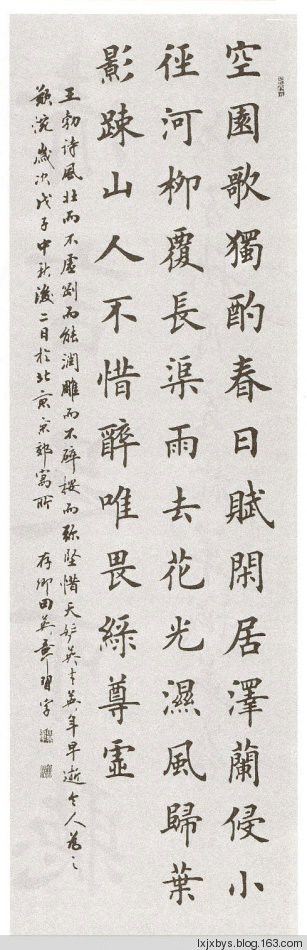 空園歌獨酌春日賦閑居澤蘭侵小
徑河柳覆長渠雨去花光濕風歸葉
影踈山人不惜醉唯畏綠尊虛
王勃詩風壯而不虛剛而能潤雕而不碎按而弥堅惜天妒英才英年早逝令人為之
歎惋歲次戊子中秋後二日於北京京郊寓所 存卿田英章習字
lxjxbys.blog.163.com